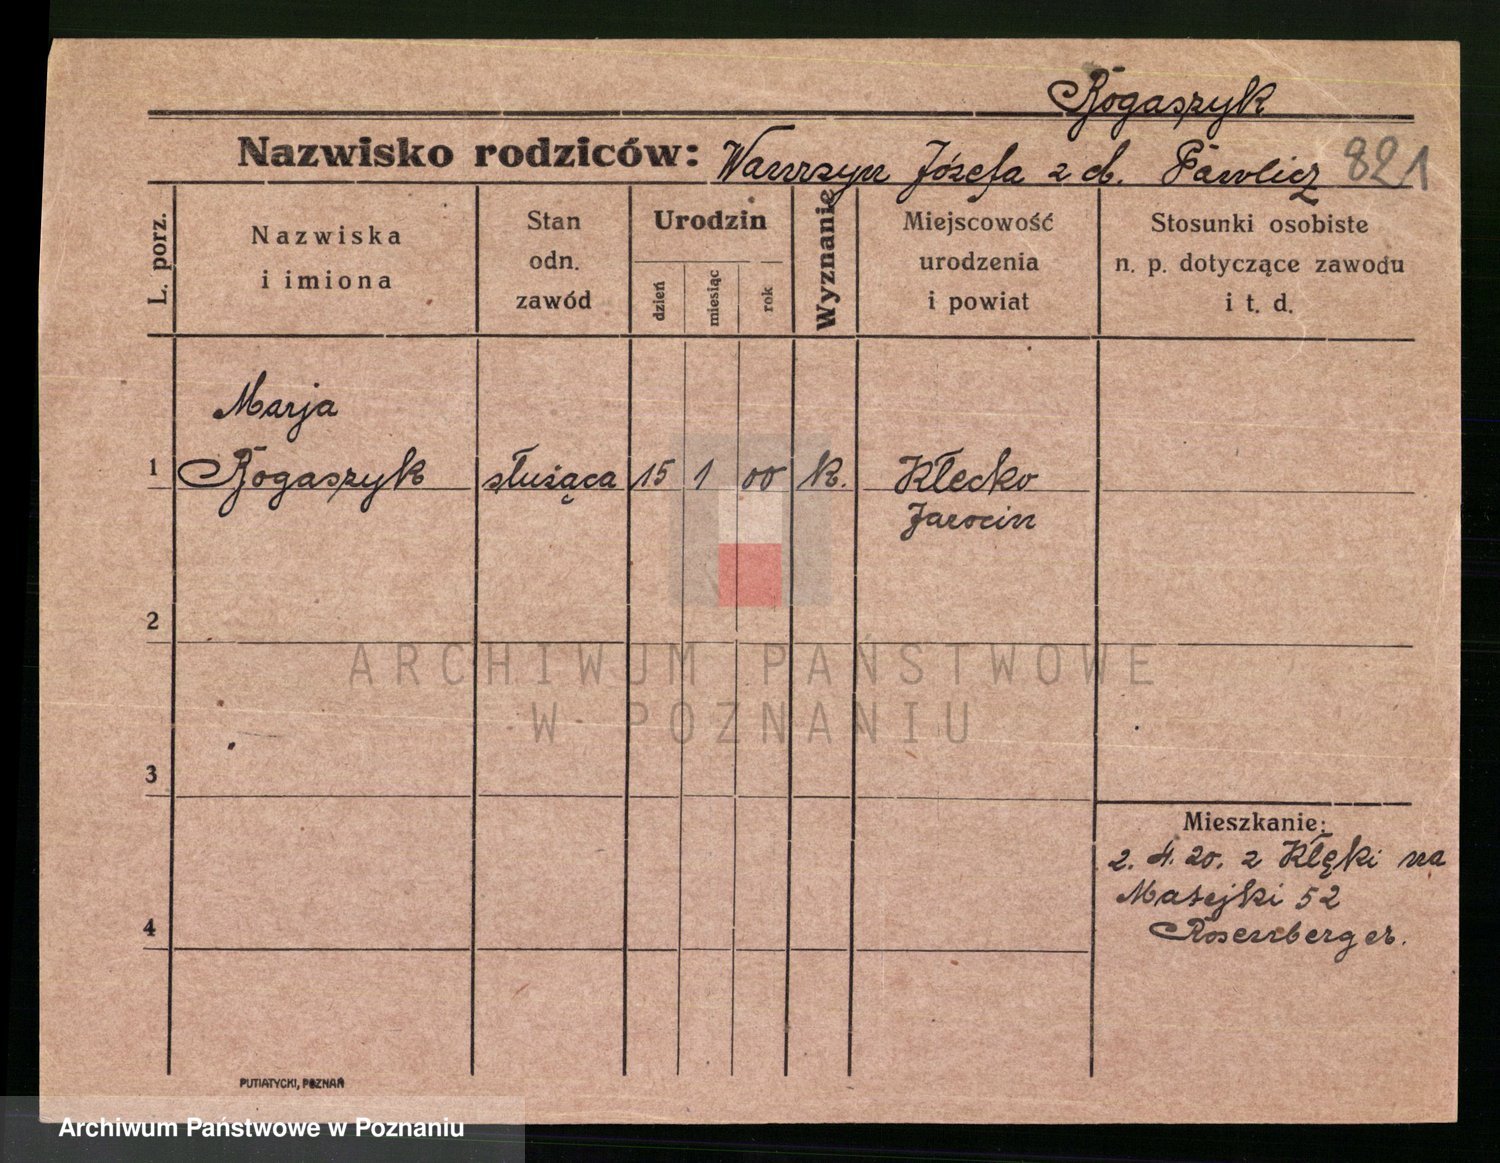 Rogaszyk
Nazwisko rodziców: Wawrzyn Józefa z d. Pawlicz 821
L. porz.
Nazwiska
i imiona
Stan
odn.
zawód
Urodzin
dzień
miesiąc
rok
Wyznanie
Miejscowość
urodzenia
i powiat
Stosunki osobiste
n. p. dotyczące zawodu
i t. d.
Marja
1 Rogaszyk służąca 15 1 00 k. Kłecko
Jarocin
2
3
4
Mieszkanie:
2. 4. 20. z Kłęki na
Matejki 52
Rosenberger.
PUTIATYCKI, POZNAŃ
ARCHIWUM PAŃSTWOWE
W POZNANIU
Archiwum Państwowe w Poznaniu